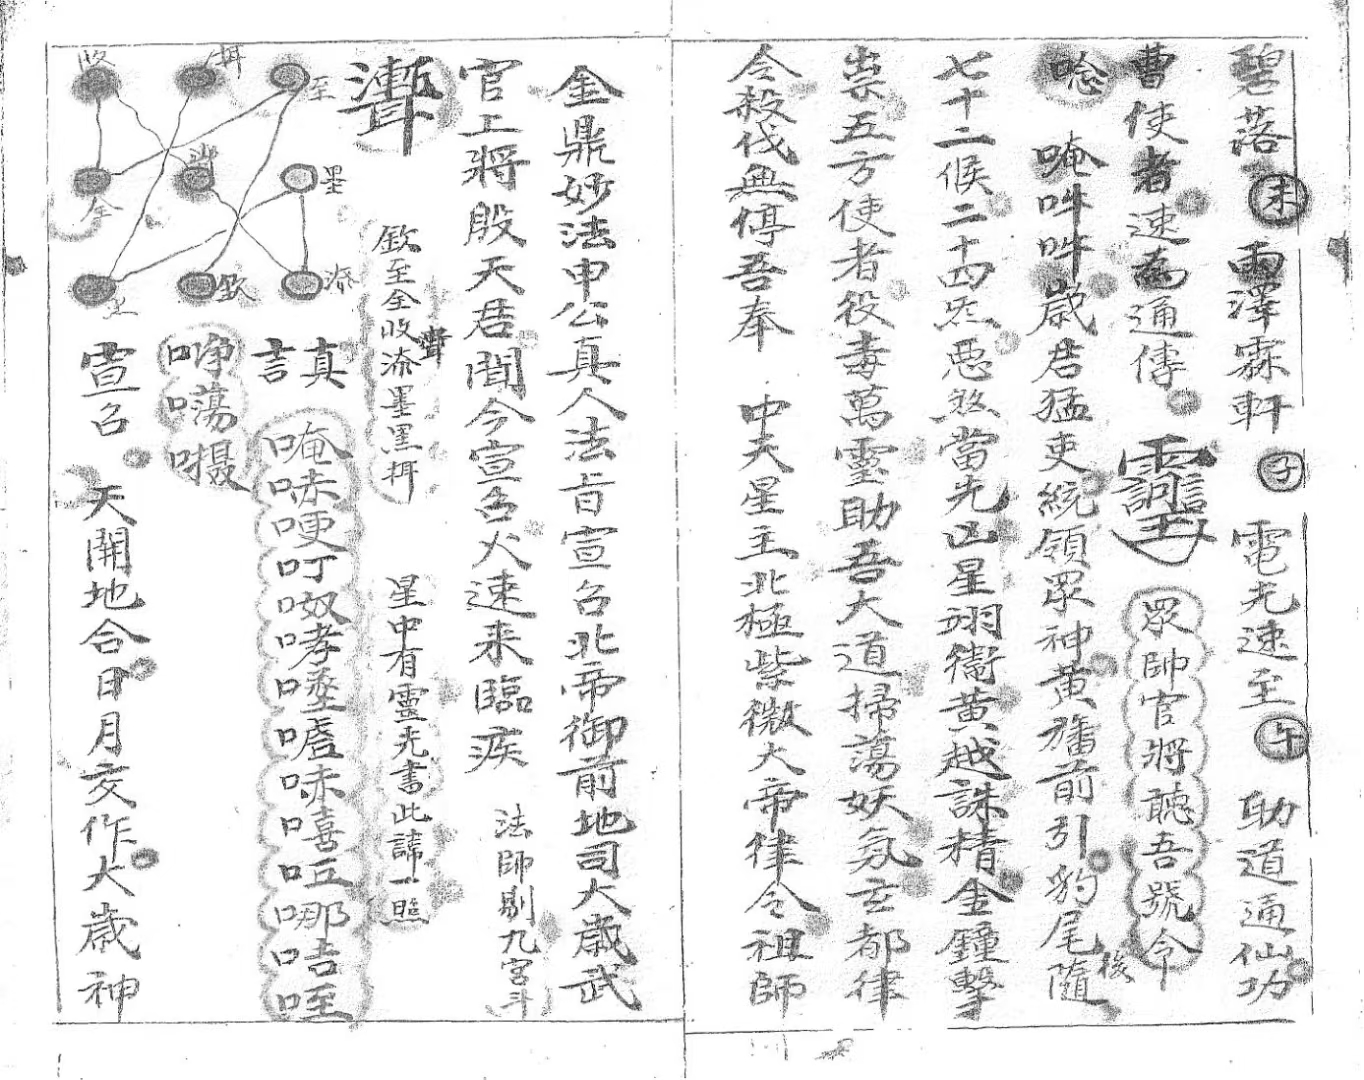 碧落 未 雨澤霖軒 子 電光速至 午 助道通仙功
曹使者速為通傳 眾帥官將聽吾號令
唸 唵吽吽歲君猛吏統領眾神黃旛前引豹尾隨後
七十二候二十四炁惡煞當先凶星翊衛黃越誅精金鐘擊
祟五方使者役毒萬靈助吾大道掃蕩妖氛玄都律
令殺伐無停吾奉 中天星主北極紫微大帝律令祖師
金鼎妙法申公真人法旨宣召北帝御前地司大歲武
官上將殷天君聞今宣召火速来臨疾 法師剔九宮斗
欽至全收流墨黑揖 星中有靈光書此諱一照
真言 唵哧哽叮呶哮𠸄嗜味嘻㕵哪咭咥
㖓㗾囁
宣召 天開地合日月交作大歲神
收 揖 至
全 墨
欽 流